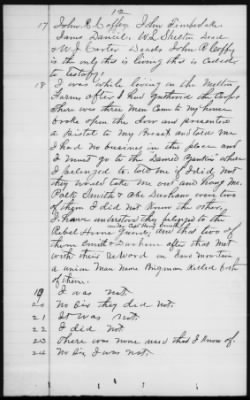 12
17 John R. Coffey John Timberlake
James Daniel. W. L. Shelton Dead
& W J Carter Dead. John R Coffey
is the only this is living this is
to testify.
18 I was while living on the
Farm after I had Gathered the Crops.
There was three men Came to my house
broke open the door and presented
a pistol to my Breast and told me
I had no business in this place and
I must go to the Damed Yankies where
I belonged to. told me if I did not
they would take me out and hang me.
Smith & Abe Durham were two
of them I did not Know the other,
I have understood they belonged to the
Rebel Home Guard, and that two of
them Smith & Durham after that met
with their reward in
a union Man Name Bigman Killed both
of them.
19 I was not.
20 No Sir they did not.
21 It was not.
22 I did not
23 There was none used that I know of.
24 No Sir I was not.